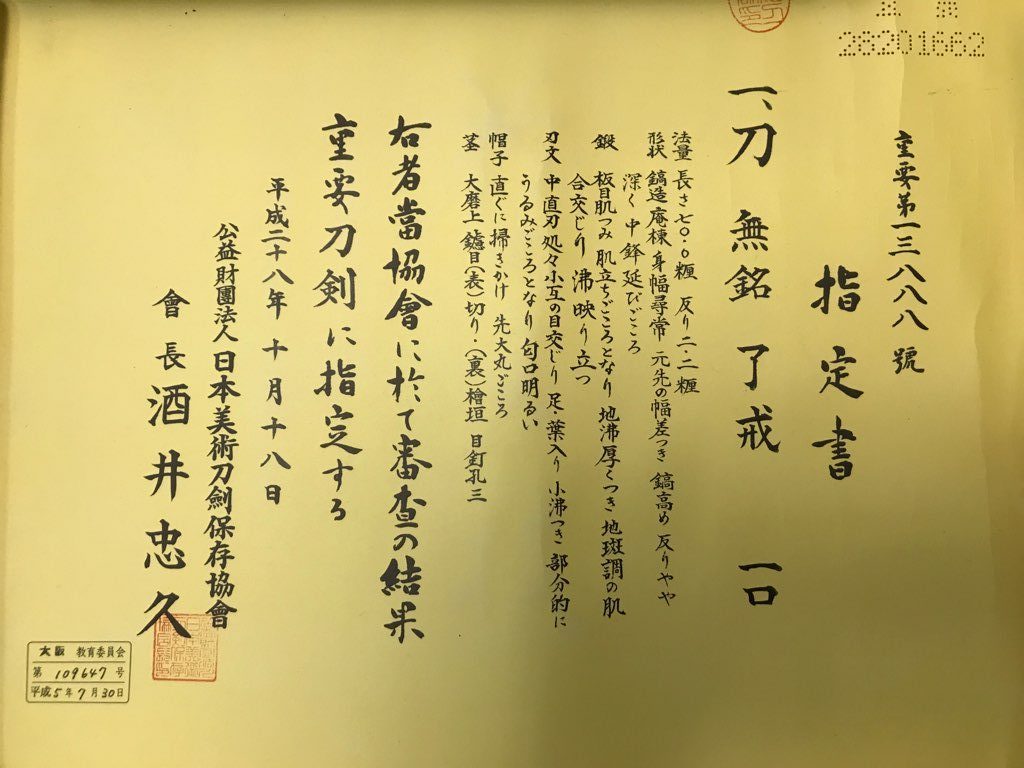 28201662
重要第一三八八八號
指定書
一、刀 無銘 了戒 一口
法量 長さ七〇・〇糎 反り二・二糎
形状 鎬造 庵棟 身幅尋常 元先の幅差つき 鎬高め 反りやや
深く 中鋒延びごころ
鍛 板目肌つみ 肌立ちごころとなり 地沸厚くつき 地斑調の肌
合交じり 沸映り立つ
刃文 中直刃 処々小互の目交じり 足・葉入り 小沸つき 部分的に
うるみごころとなり 匂口明るい
帽子 直ぐに掃きかけ 先大丸ごころ
茎 大磨上 鑢目(表)切り・(裏)檜垣 目釘孔三
右者當協會に於て審査の結果
重要刀剣に指定する
平成二十八年十月十八日
公益財團法人日本美術刀劍保存協會
會長 酒井忠久
大阪 教育委員会
第 109647 号
平成5年7月30日